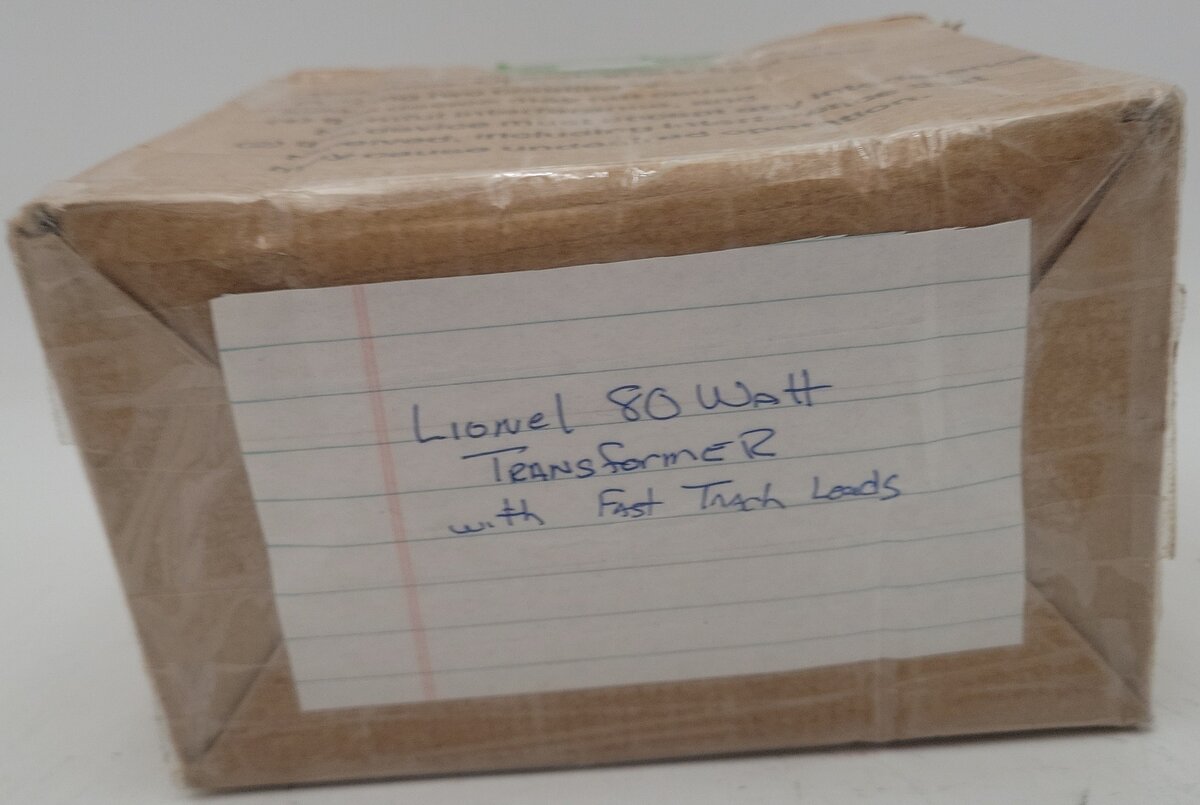 undesired operation.
Lionel 80 Watt
Transformer
with Fast Track Leads